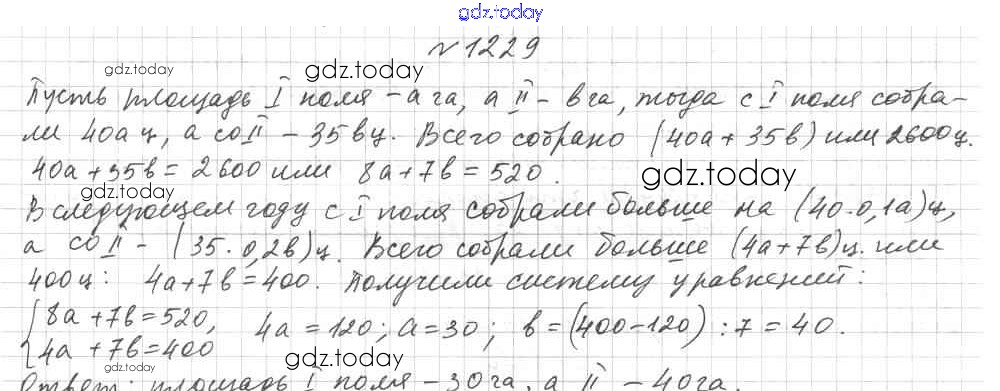 gdz.today
№ 1229
gdz.today gdz.today
Пусть площадь I поля - а га, а II - в га, тогда с I поля собра-
ли 40а ц, а со II - 35в ц. Всего собрано (40а + 35в) или 2600 ц.
40а + 35в = 2600 или 8а + 7в = 520.
gdz.today gdz.today
В следующем году с I поля собрали больше на (40·0,1а) ц,
а со II - (35·0,2в) ц. Всего собрали больше (4а + 7в) ц. или
400 ц: 4а + 7в = 400. Получили систему уравнений:
{ 8а + 7в = 520, 4а = 120; а = 30; в = (400 - 120) : 7 = 40.
4а + 7в = 400
gdz.today gdz.today
Ответ: площадь I поля - 30 га, а II - 40 га.